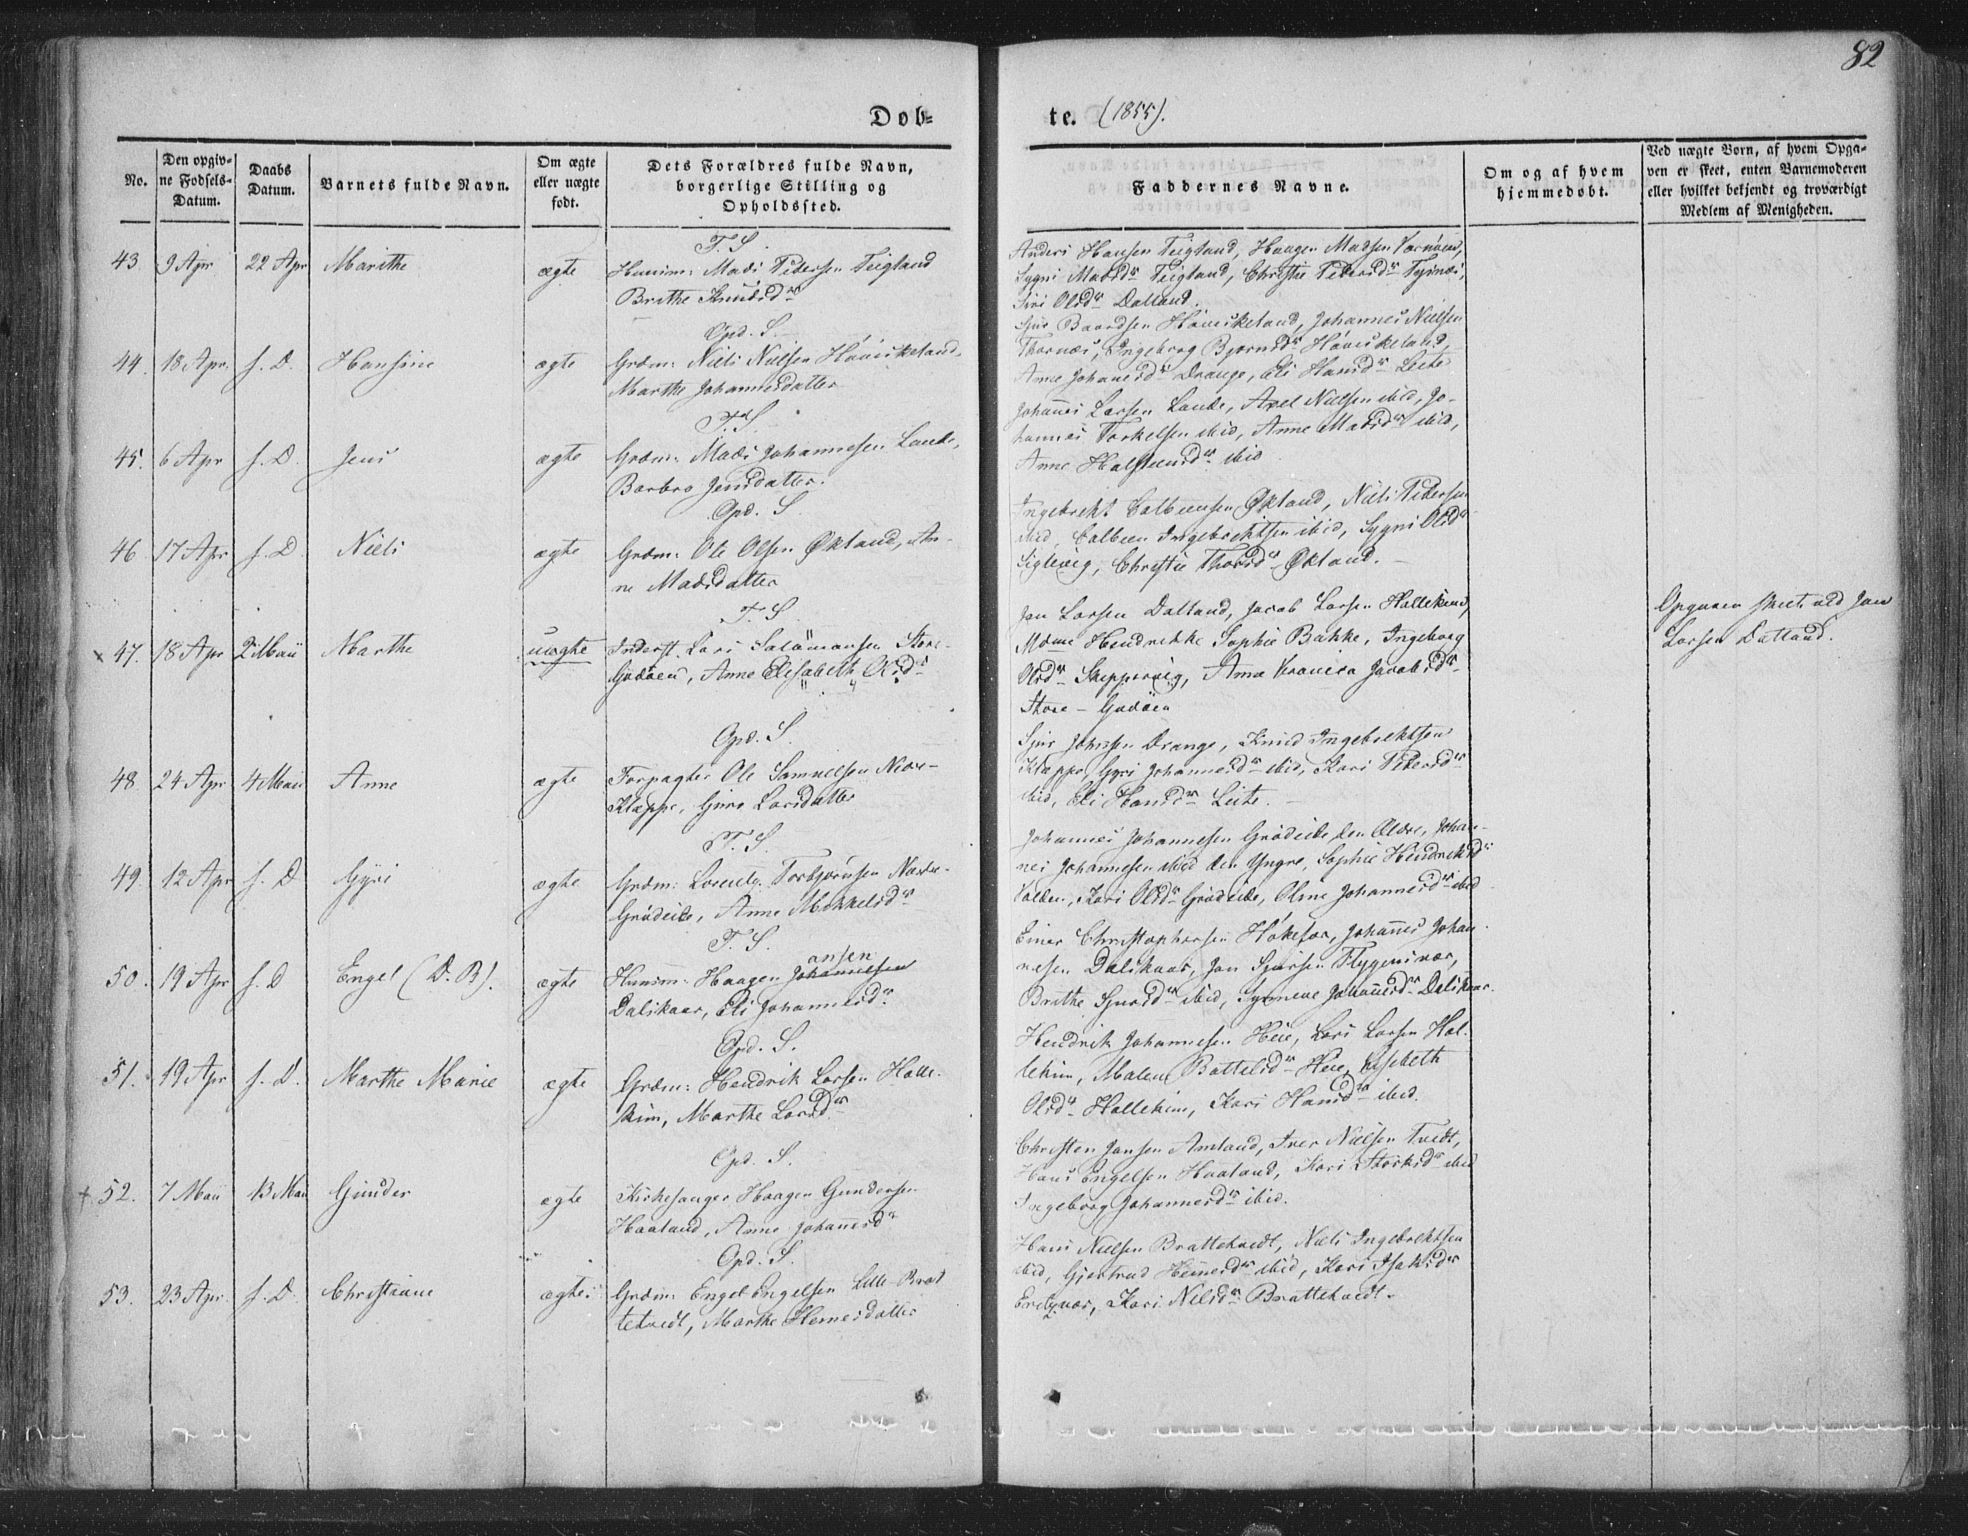 82
Dob=
te. (1855).
No.
Den opgiv=
ne Fødsels=
Datum.
Daabs
Datum.
Barnets fulde Navn.
Om ægte
eller uægte
født.
Dets Forældres fulde Navn,
borgerlige Stilling og
Opholdssted.
Faddernes Navne.
Om og af hvem
hjemmedøbt.
Ved uægte Børn, af hvem Opga=
ven er skeet, enten Barnemoderen
eller hvilket bekjendt og troværdigt
Medlem af Menigheden.
T. S.
43. 9 Apr 22 Apr Marithe ægte Huusm: Mads Pedersen Teigland
Brithe Knudsdr
Anders Hansen Teigland, Haagen Madsen
Sygni Madsdr Teigland, Christie Pedersdr Tysnæs,
Siri Olsdr Dalland.
Opd. S.
44. 18 Apr. s. D. Hansine ægte Grdm: Niels Nielsen Høviskeland,
Marthe Johannesdatter
Sjur Baardsen Høviskeland, Johannes Nielsen
Thornæs, Ingeborg Bjørnsdr Høviskeland,
Anne Johannesdr Drange, Eli Hansdr Leite
T. S.
45. 6 Apr s. D. Jens ægte Grdm: Mads Johannesen Lande,
Barbro Jensdatter.
Johannes Larsen Lande, Axel Nielsen ibid, Jo-
hannes Torkelsen ibid, Anne Madsdr ibid,
Anne Halsteensdr ibid
Opd. S.
46 17 Apr s. D Niels ægte Grdm: Ole Olsen Økland, An-
ne Madsdatter
Ingebrekt Colbeensen Økland, Niels Pedersen
ibid, Colbeen Ingebrektsen ibid, Sygni Olsdr
Siglevig, Christie Thorsdr Økland. -
T. S.
× 47. 18 Apr 2 Maii Marthe uægte Inderst. Lars Salamonsen Store-
Godøen, Anne Elisabeth Olsdr
Jon Larsen Dalland, Jacob Larsen Hallekind,
Hendrikke Sophie Bakke, Ingeborg
Olsdr Skippervig, Anna Jacobsdr
Store-Godøen
Opgaven skeet ved Jon
Larsen Dalland.
Opd. S.
48. 24 Apr 4 Maii Anne ægte Forpagter Ole Samuelsen Nedre-
Kleppe, Guro Larsdatter
Sjur Johnsen Drange, Knud Ingebrektsen
Kleppe, Gyri Johannesdr ibid, Kari Pedersdr
ibid, Eli Hansdr Leite. -
T. S.
49. 12 Apr s. D Gyri ægte Grdm: Lorents Torbjørnsen Nedre-
Grødeide, Anne Mikkelsdr
Johannes Johannesen Grødeide den Ældre, Johan-
nes Johannesen ibid den Yngre, Sophie Hendriksdr
Valden, Kari Olsdr Grødeide, Oline Johannesdr ibid
T. S.
50. 19 Apr s. D Engel (D.B). ægte Huusm: Haagen Johannesen
ansen
Dalskaar, Eli Johannesdr
Einer Christophersen Høkefar, Johannes Johan-
nesen Dalskaar, Jon Sjursen Flygensvær,
Brithe Sjursdr ibid, Synneve Johannesdr Dalskaar.
Opd. S.
51. 19 Apr s. D. Marthe Marie ægte Grdm: Hendrik Larsen Halle-
kim, Marthe Larsdr
Hendrik Johannesen Heie, Lars Larsen Hal-
lekim, Malene Battelsdr Heie, Lisbeth
Olsdr Hallekim, Kari Hansdr ibid.
Opd. S.
+ 52. 7 Maii 13 Maii Gunder ægte Kirkesanger Haagen Gundersen
Haaland, Anne Johannesdr
Christen Jansen Amland, Iver Nielsen Tvedt,
Hans Engelsen Haaland, Kari Størksdr ibid
Ingeborg Johannesdr ibid.
Opd. S.
53. 23 Apr. s. D. Christiane ægte Grdm: Engel Engelsen Lille-Brat-
tetvedt, Marthe Hemesdatter
Hans Nielsen Brattetvedt, Niels Ingebrektsen
ibid, Gjertrud Hemesdr ibid, Kari Isaksdr
Kari Nilsdr Brattetvedt.